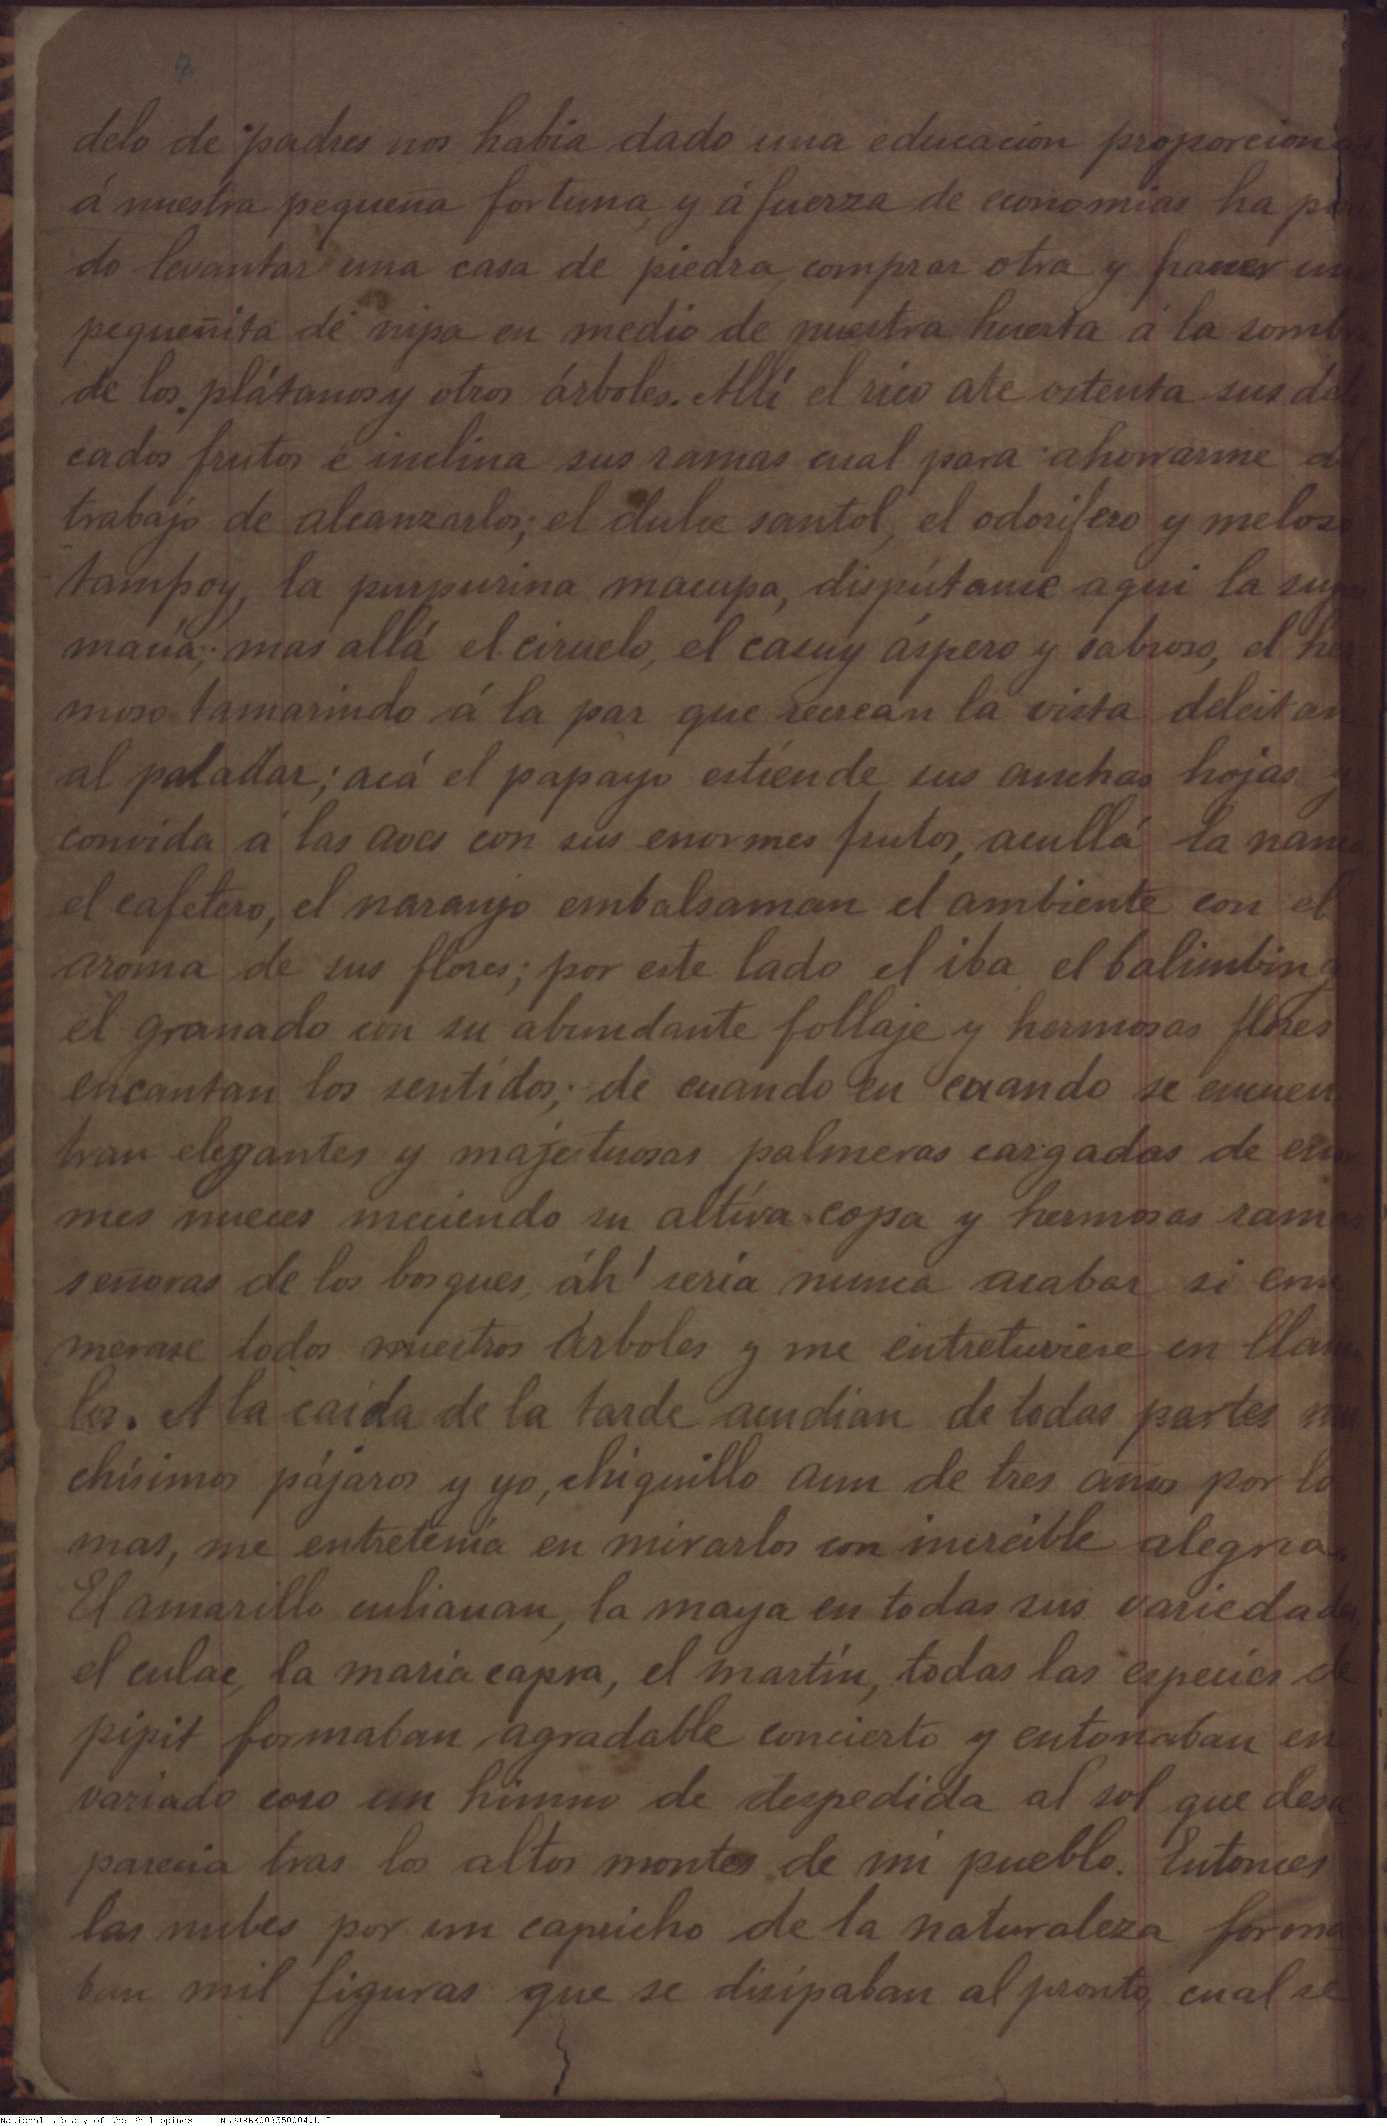 2
delo de padres nos habia dado una educacion proporcionad
á nuestra pequeña fortuna, y á fuerza de economias ha po
do levantar una casa de piedra, comprar otra y hacer una
pequeñita de nipa en medio de nuestra huerta á la sombra
de los plátanos y otros árboles. Allí el rico ate ostenta sus deli
cados frutos é inclina sus ramas cual para ahorrarme del
trabajo de alcanzarlos; el dulce santol, el odorífero y meloso
tampoy, la purpurina macupa, dispútanse aqui la supre
macia; mas allá el ciruelo, el casuy áspero y sabroso, el her
moso tamarindo á la par que recrean la vista deleitan
al paladar; acá el papayo estiende sus anchas hojas y
convida á las aves con sus enormes frutos, acullá la nanca
el cafetero, el naranjo embalsaman el ambiente con el
aroma de sus flores; por este lado el iba, el balimbing
el granado con su abundante follaje y hermosas flores
encantan los sentidos; de cuando en cuando se encuen
tran elegantes y majestuosas palmeras cargadas de enor
mes nueces meciendo su altiva copa y hermosas ramas
señoras de los bosques, áh! seria nunca acabar si enu
merase todos nuestros árboles y me entretuviese en llamar
los. A la caida de la tarde acudian de todas partes mu
chísimos pájaros y yo, chiquillo aun de tres años por lo
mas, me entretenía en mirarlos con increible alegria.
El amarillo culianan, la maya en todas sus variedades,
el culae, la maria capra, el martín, todas las especies de
pipit formaban agradable concierto y entonaban en
variado coro un himno de despedida al sol que desa
parecia tras los altos montes de mi pueblo. Entonces
las nubes por un capricho de la naturaleza forma
ban mil figuras que se disipaban al pronto, cual se
National Library of the Philippines